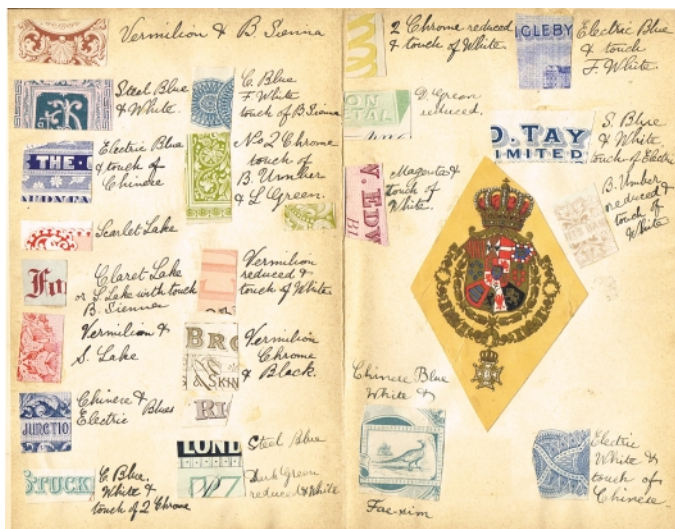 Vermilion & B Sienna
Steel Blue
& White.
C. Blue
F. White
touch of B Sienna
THE
Electric Blue
& touch of
Chinese
No 2 Chrome
touch of
B. Umber
& L Green.
Scarlet Lake
Fo
Claret Lake
or S. Lake with touch
B. Sienna
Vermilion
reduced &
touch of White
Vermilion &
S. Lake
BRO
& SKIN
RI
Vermilion
Chrome
& Black.
JUNCTIO
Chinese &
Electric Blues
LUND
Steel Blue
Dark Green
reduced & White
STUCK
C. Blue.
White &
touch of 2 Chrome
2 Chrome reduced
& touch of White
IGLEBY
Electric Blue
& touch
F. White.
ON
ETAL
D. Green
reduced.
O. TAY
IMITED
S. Blue
& White
touch of Electric
V. EDW
Magenta &
touch of
White.
B. Umber
reduced &
touch of
White
Chinese Blue
White &
Electric
White &
touch of
Chinese